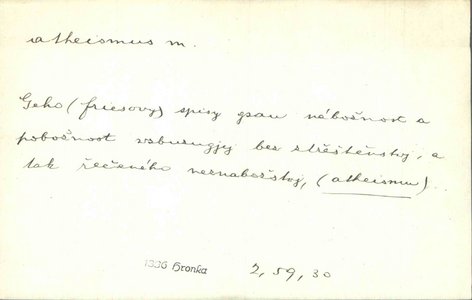 atheismus m.
Geho (friesovy) spisy gsau nábožnost a
pobožnost vzbuzugjcý bez
tak řečeného neznabožstwj, (atheismu).
1836 Hronka 2, 59, 30